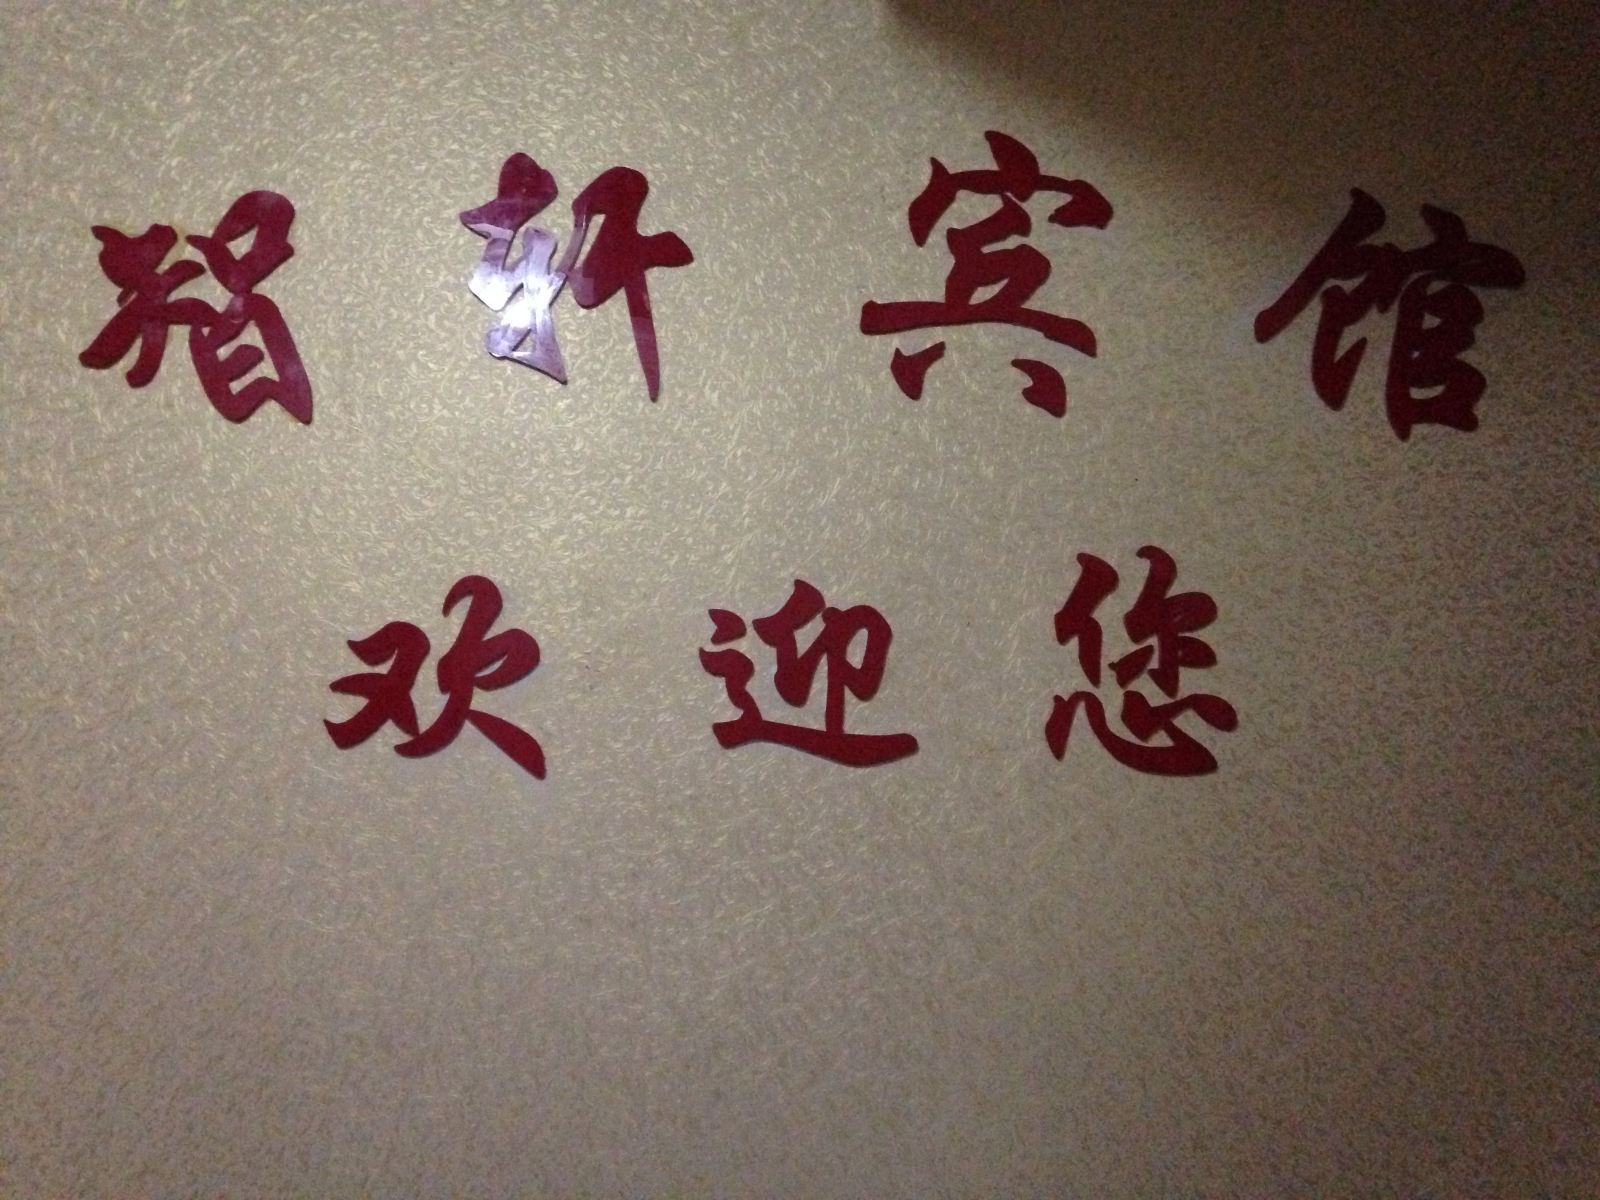 智轩宾馆
欢迎您